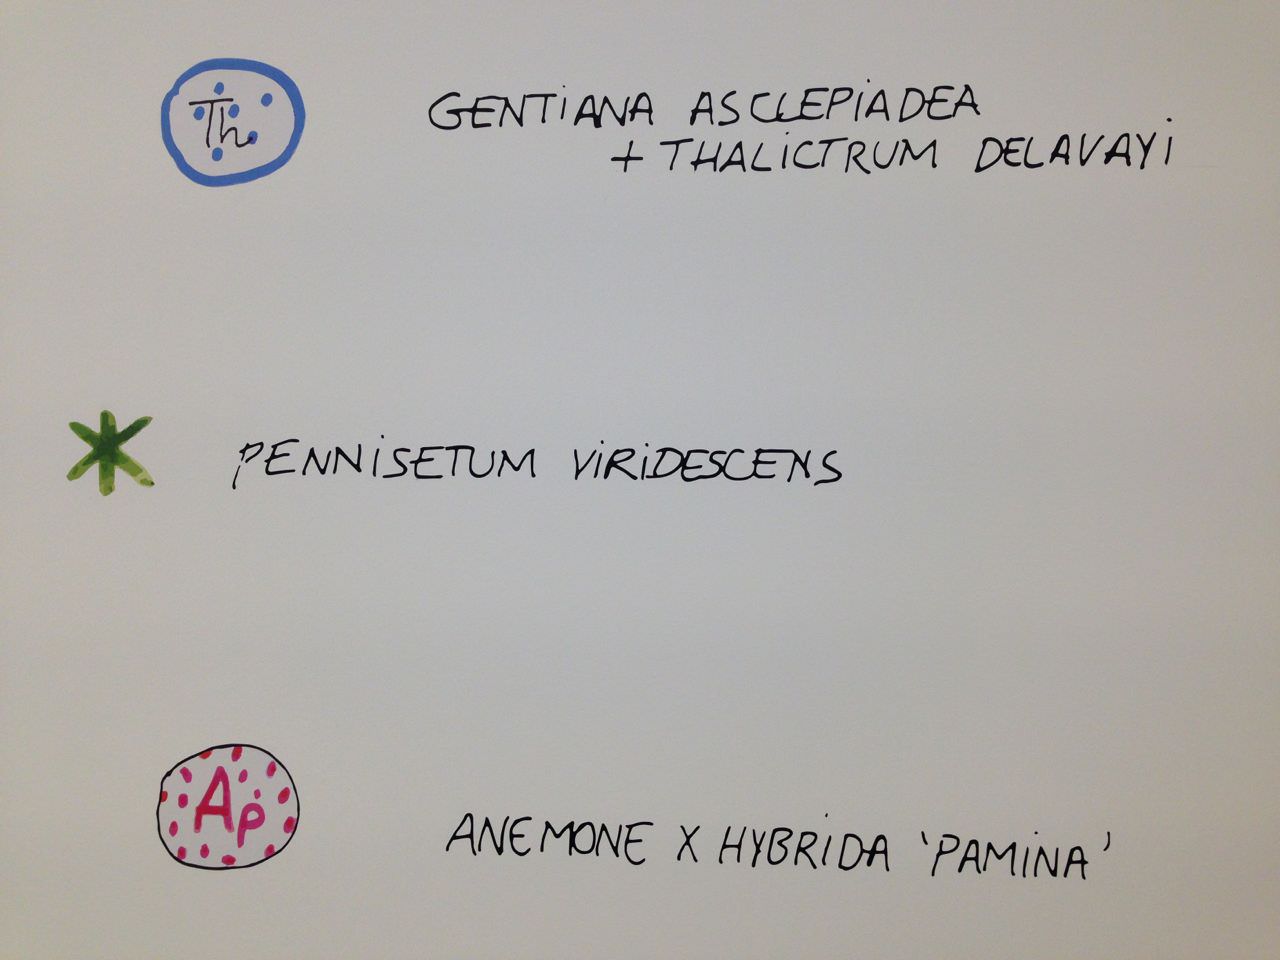 Th
GENTIANA ASCLEPIADEA
+ THALICTRUM DELAVAYI
PENNISETUM VIRIDESCENS
Ap
ANEMONE X HYBRIDA 'PAMINA'